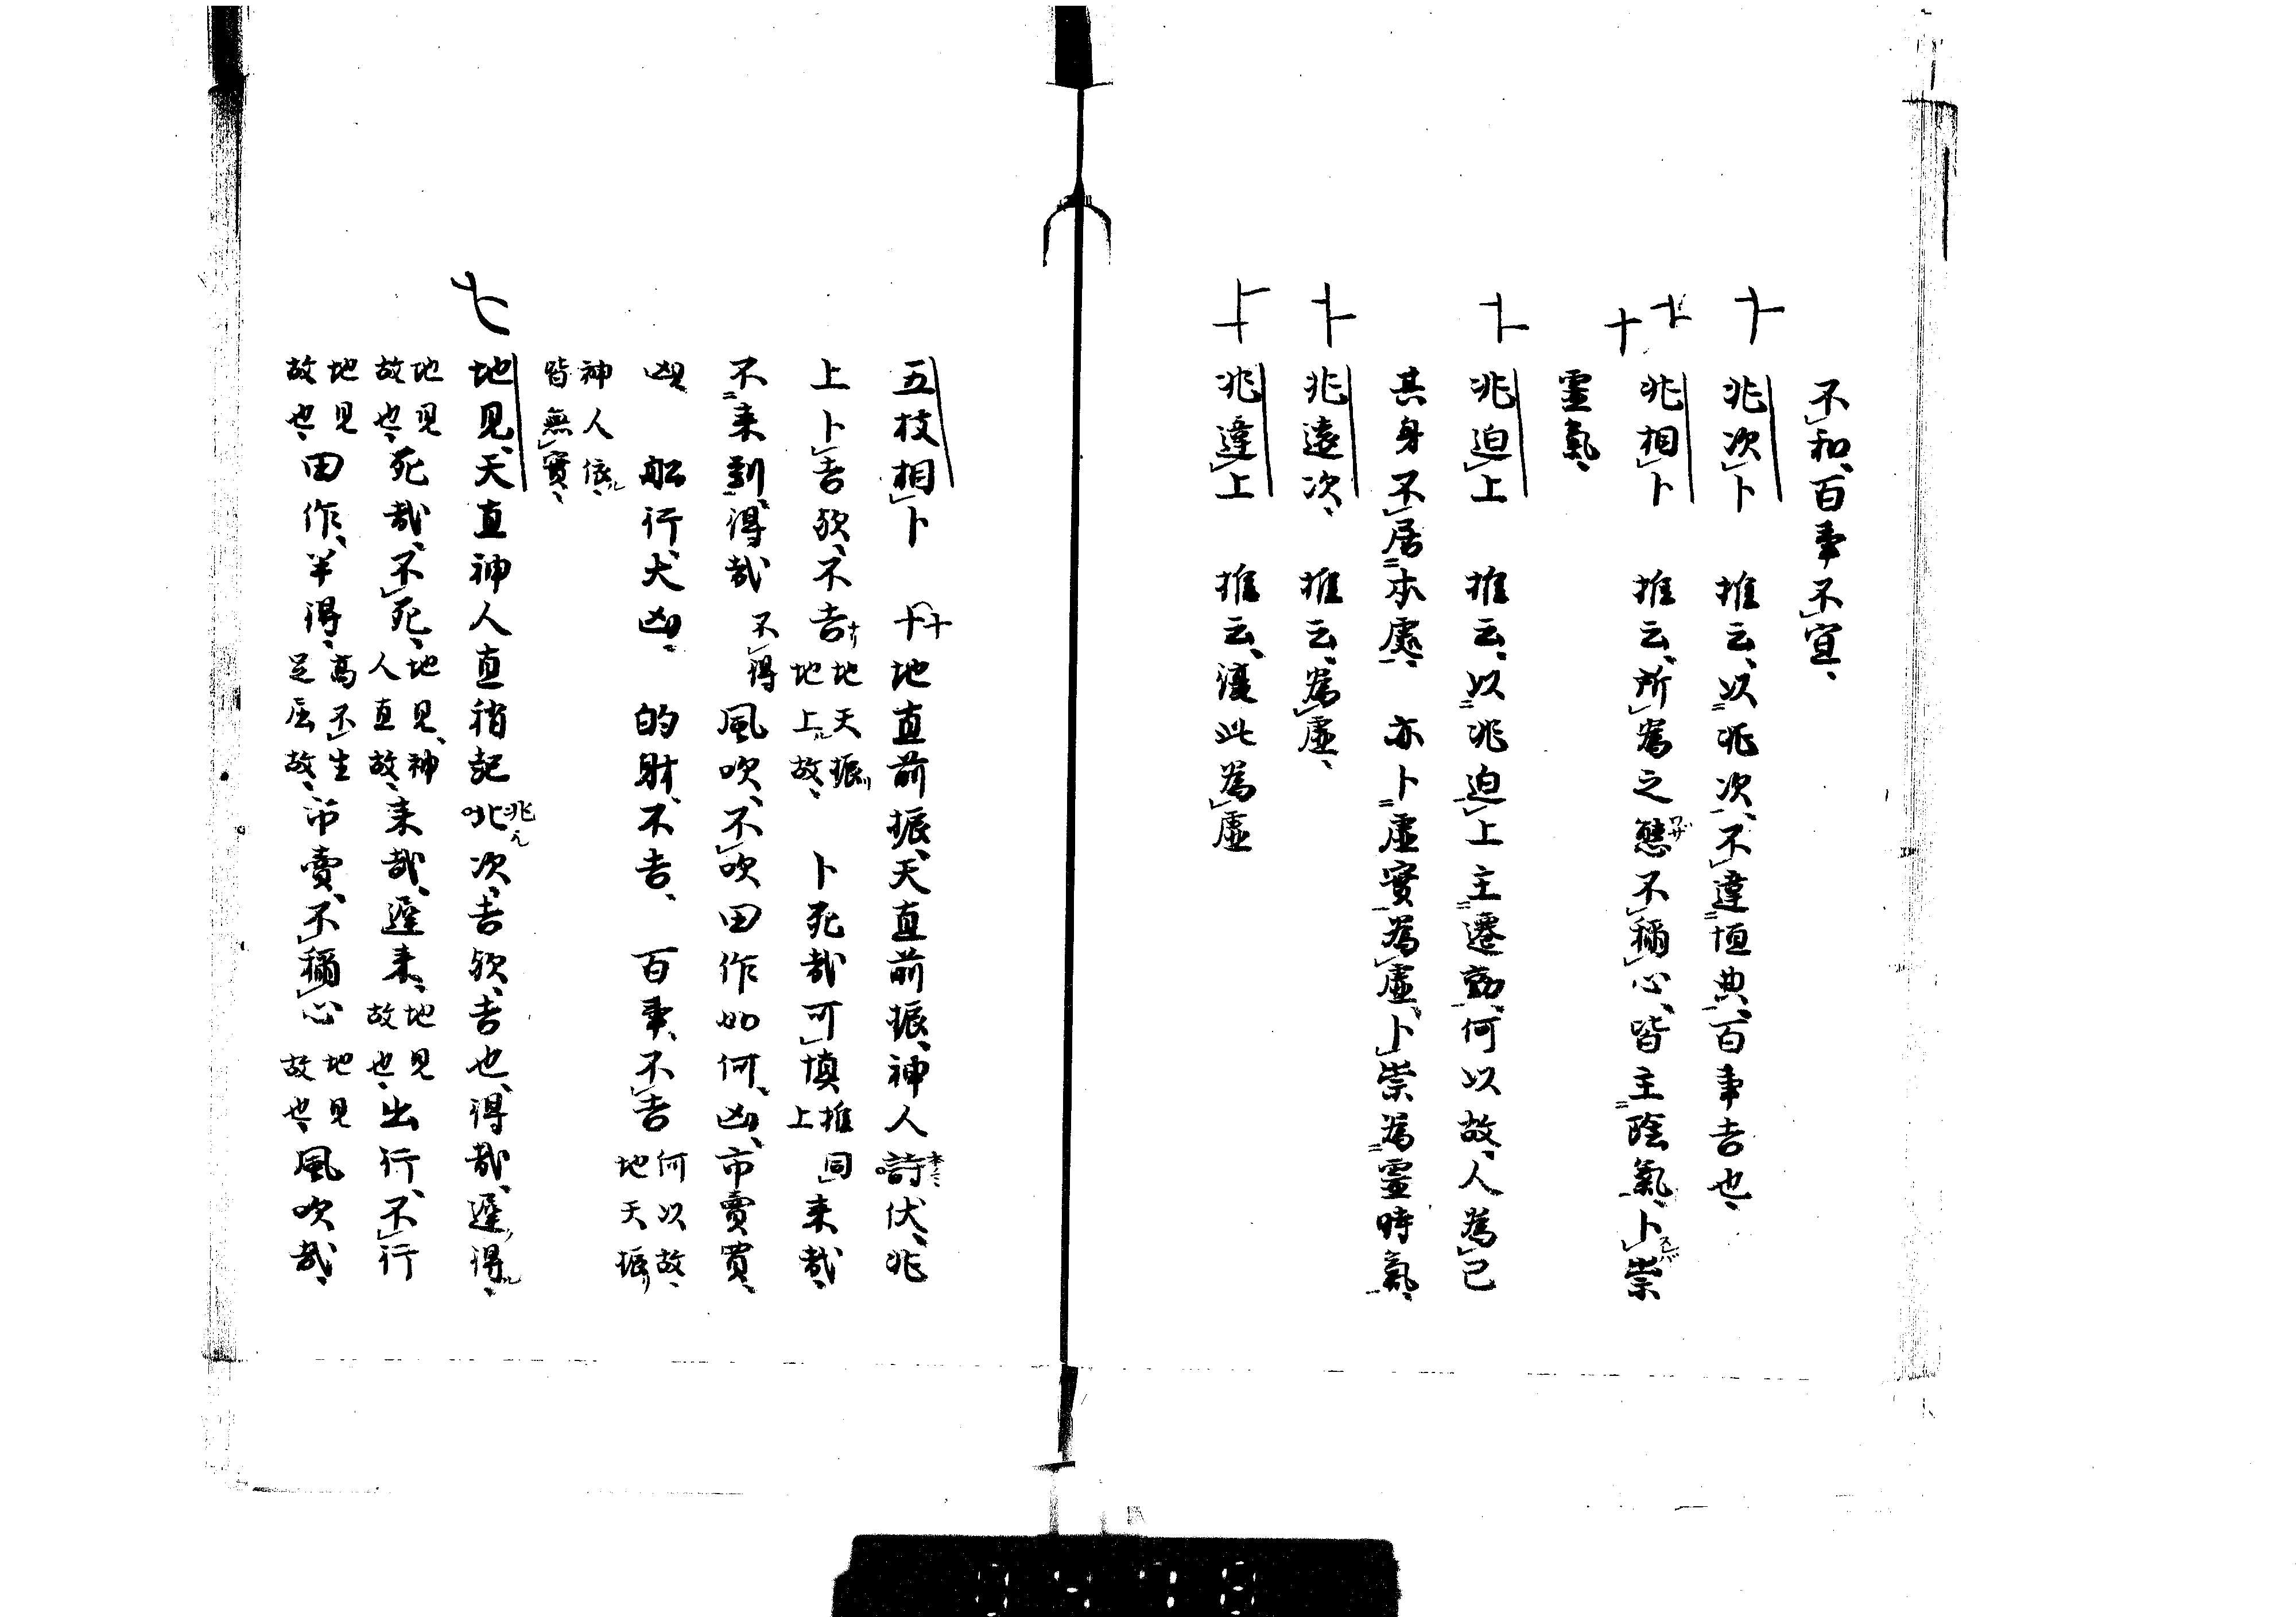 不和、百事不宜、
兆次卜　推云、以兆次、不違恒典、百事吉也、
兆相卜　推云、所為之態不稱心、皆主陰氣、卜祟
靈氣、
兆迫上　推云、以兆迫上主遷動、何以故、人為己
其身不居本處、亦卜虚實為虚、卜祟為靈時氣、
兆遠次、推云、為虚、
兆違上　推云、 此為虚
五枝相卜　地直前振、天直前振、神人詩伏、兆
上卜吉欤、不吉、地天振地上故、卜死哉可慎推同上来哉、
不来到、得哉不得風吹、不吹田作如何、凶、市賣買、
凶　船行、大凶、的財、不吉、百事、不吉何以故、地天振
神人依、皆無實、
地見、天直神人直 記兆次、吉欤、吉也、得哉、遅得、
地見故也、死哉、不死、地見、神人直故、来哉、遅来、地見故也、出行、不行
地見故也、田作、半得、高不生足 故、市賣、不稱心地見故也、風吹哉、